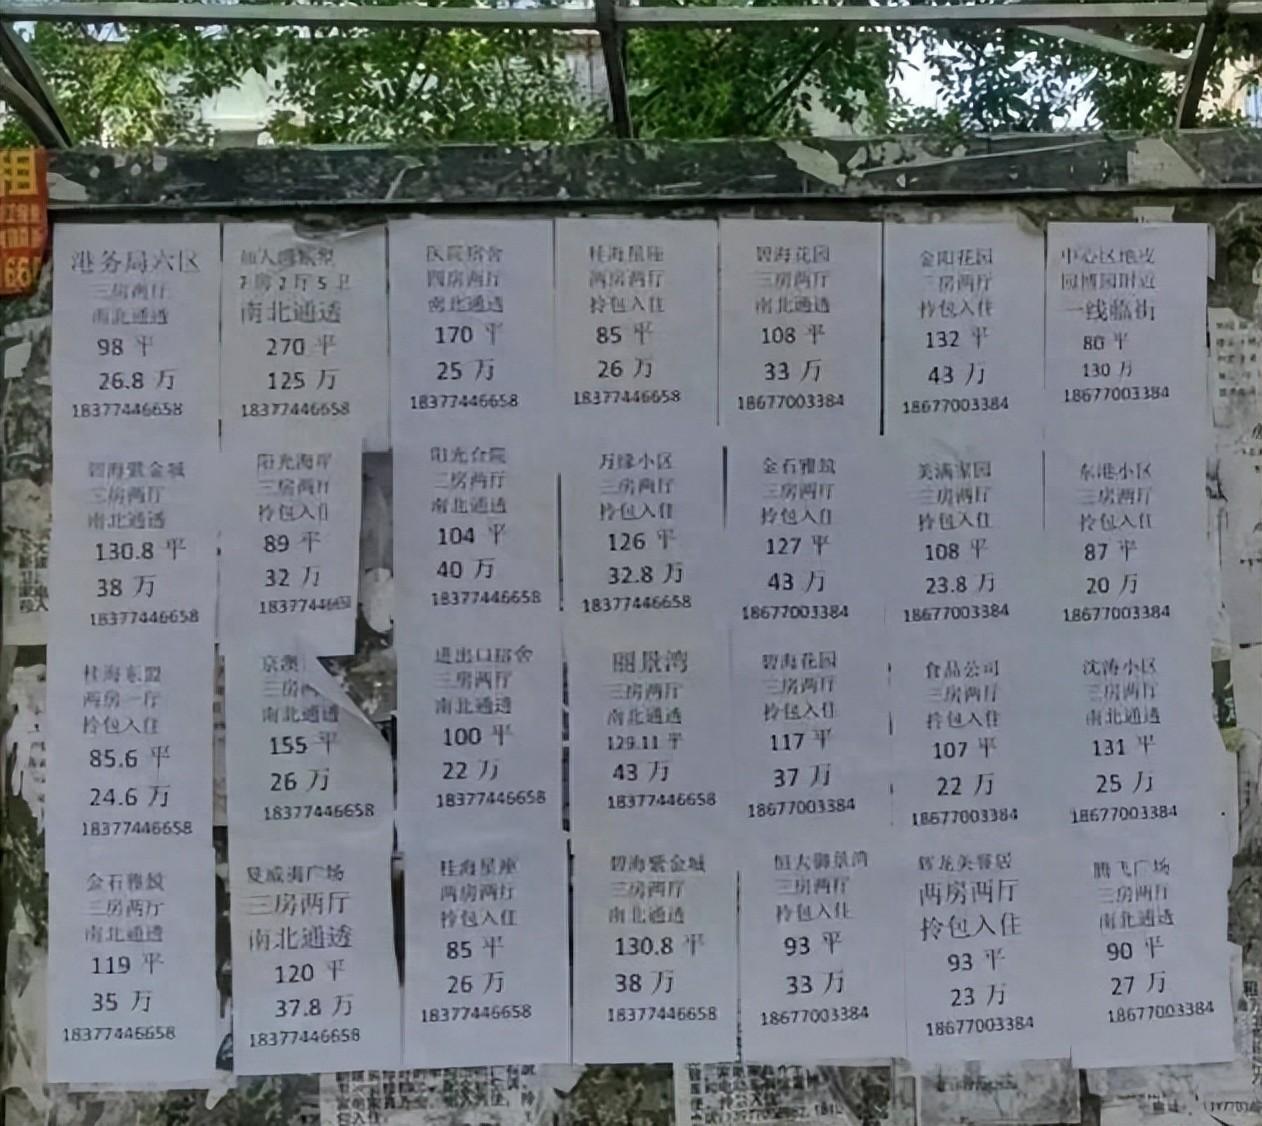 租
港务局六区
三房两厅
南北通透
98 平
26.8 万
18377446658
7 房 2 厅 5 卫
南北通透
270 平
125 万
18377446658
医院宿舍
四房两厅
南北通透
170 平
25 万
18377446658
桂海星座
两房两厅
拎包入住
85 平
26 万
18377446658
碧海花园
三房两厅
南北通透
108 平
33 万
18677003384
金阳花园
三房两厅
拎包入住
132 平
43 万
18677003384
中心区地皮
园博园附近
一线临街
80 平
130 万
18677003384
碧海紫金城
三房两厅
南北通透
130.8 平
38 万
18377446658
阳光海岸
三房两厅
拎包入住
89 平
32 万
18377446658
阳光合院
三房两厅
南北通透
104 平
40 万
18377446658
万缘小区
三房两厅
拎包入住
126 平
32.8 万
18377446658
金石雅筑
三房两厅
拎包入住
127 平
43 万
18677003384
美满家园
三房两厅
拎包入住
108 平
23.8 万
18677003384
东港小区
三房两厅
拎包入住
87 平
20 万
18677003384
桂海东盟
两房一厅
拎包入住
85.6 平
24.6 万
18377446658
京澳
三房两
南北通透
155 平
26 万
18377446658
进出口宿舍
三房两厅
南北通透
100 平
22 万
18377446658
丽景湾
三房两厅
南北通透
129.11 平
43 万
18377446658
碧海花园
三房两厅
拎包入住
117 平
37 万
18677003384
食品公司
三房两厅
拎包入住
107 平
22 万
18677003384
沈涛小区
三房两厅
南北通透
131 平
25 万
18677003384
金石雅筑
三房两厅
南北通透
119 平
35 万
18377446658
夏威夷广场
三房两厅
南北通透
120 平
37.8 万
18377446658
桂海星座
两房两厅
拎包入住
85 平
26 万
18377446658
碧海紫金城
三房两厅
南北通透
130.8 平
38 万
18377446658
恒大御景湾
三房两厅
拎包入住
93 平
33 万
18677003384
辉龙美馨居
两房两厅
拎包入住
93 平
23 万
18677003384
腾飞广场
三房两厅
南北通透
90 平
27 万
18677003384